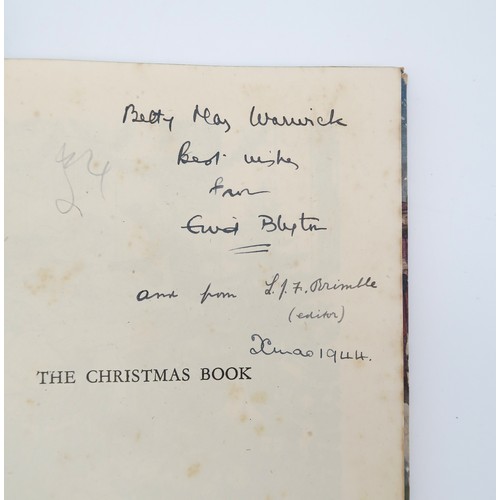 Betty May Warwick
Best wishes
from
Enid Blyton
£4
and from L. J. F. Brimble
(editor)
Xmas 1944.
THE CHRISTMAS BOOK